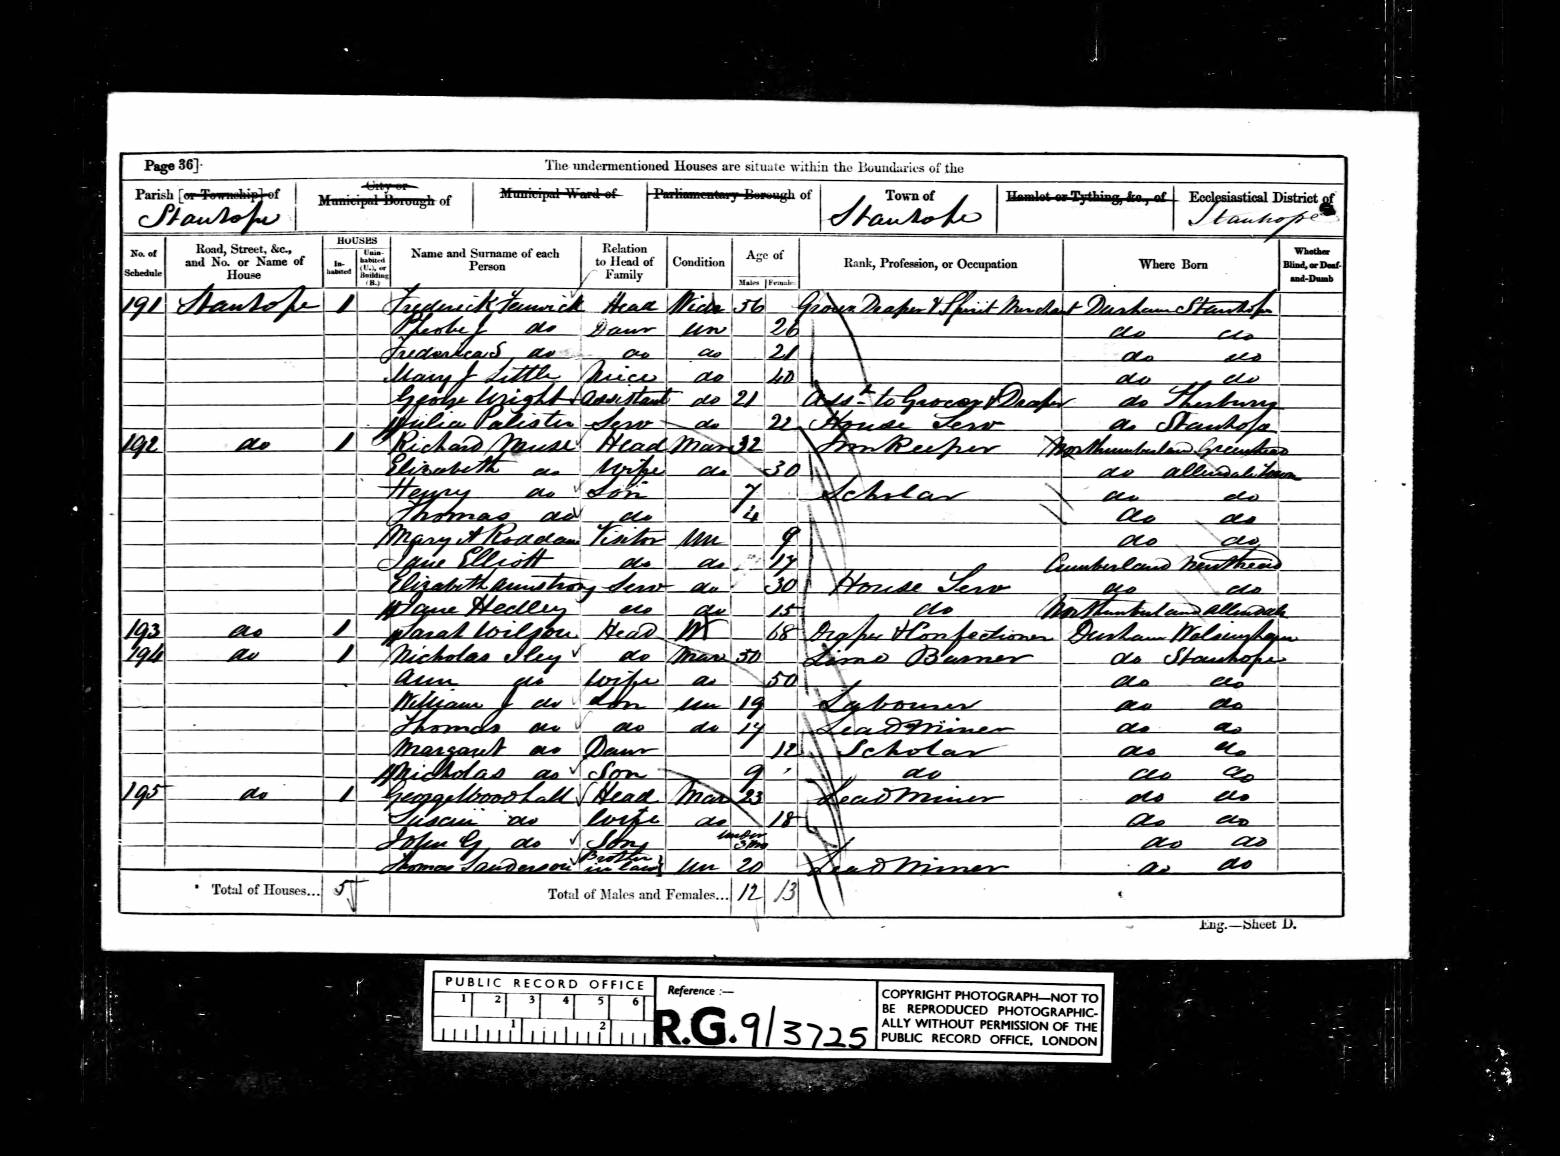 Page 36]
The undermentioned Houses are situate within the Boundaries of the
Parish [or Township] of
City or Municipal Borough of
Municipal Ward of
Parliamentary Borough of
Town of
Hamlet or Tything, &c., of
Ecclesiastical District of
Stanhope
Stanhope
Stanhope
No. of Schedule
Road, Street, &c., and No. or Name of House
HOUSES
Inhabited
Uninhabited (U.), or Building (B.)
Name and Surname of each Person
Relation to Head of Family
Condition
Age of
Males
Females
Rank, Profession, or Occupation
Where Born
Whether Blind, or Deaf-and-Dumb
191 Stanhope 1 Frederick Fenwick Head Widr 56 Grocer Draper & Spirit Merchant Durham Stanhope
Phoebe J do Daur Un 26 do do
Frederica S do do do 21 do do
Mary J Little Niece do 40 do do
George Wright Assistant do 21 Asst to Grocer & Draper do
Julia Palister Serv do 22 House Serv do Stanhope
192 do 1 Richard Muse Head Mar 32 Innkeeper Northumberland Greenhead
Elizabeth do Wife do 30 do Allendale Town
Henry do Son 7 Scholar do do
Thomas do do 4 do do
Mary A Roddam Visitor Un 9 do do
Jane Elliott do do 17 Cumberland
Elizabeth Armstrong Serv do 30 House Serv do do
Jane Hedley do do 15 do Northumberland Allendale
193 do 1 Sarah Wilson Head W 68 Draper & Confectioner Durham Wolsingham
194 do 1 Nicholas Iley do Mar 50 Lime Burner do Stanhope
Ann do Wife do 50 do do
William J do Son Un 19 Labourer do do
Thomas do do do 17 Lead Miner do do
Margaret do Daur 12 Scholar do do
Nicholas do Son 9 do do do
195 do 1 George Woodhall Head Mar 23 Lead Miner do do
Susan do Wife do 18 do do
John G do Son under 3 mo do do
Thomas Sanderson Brother in law Un 20 Lead Miner do do
Total of Houses... 5
Total of Males and Females... 12 13
Eng.—Sheet D.
PUBLIC RECORD OFFICE
1 2 3 4 5 6
1 2
Reference :—
R.G. 9/3725
COPYRIGHT PHOTOGRAPH—NOT TO
BE REPRODUCED PHOTOGRAPHIC-
ALLY WITHOUT PERMISSION OF THE
PUBLIC RECORD OFFICE, LONDON